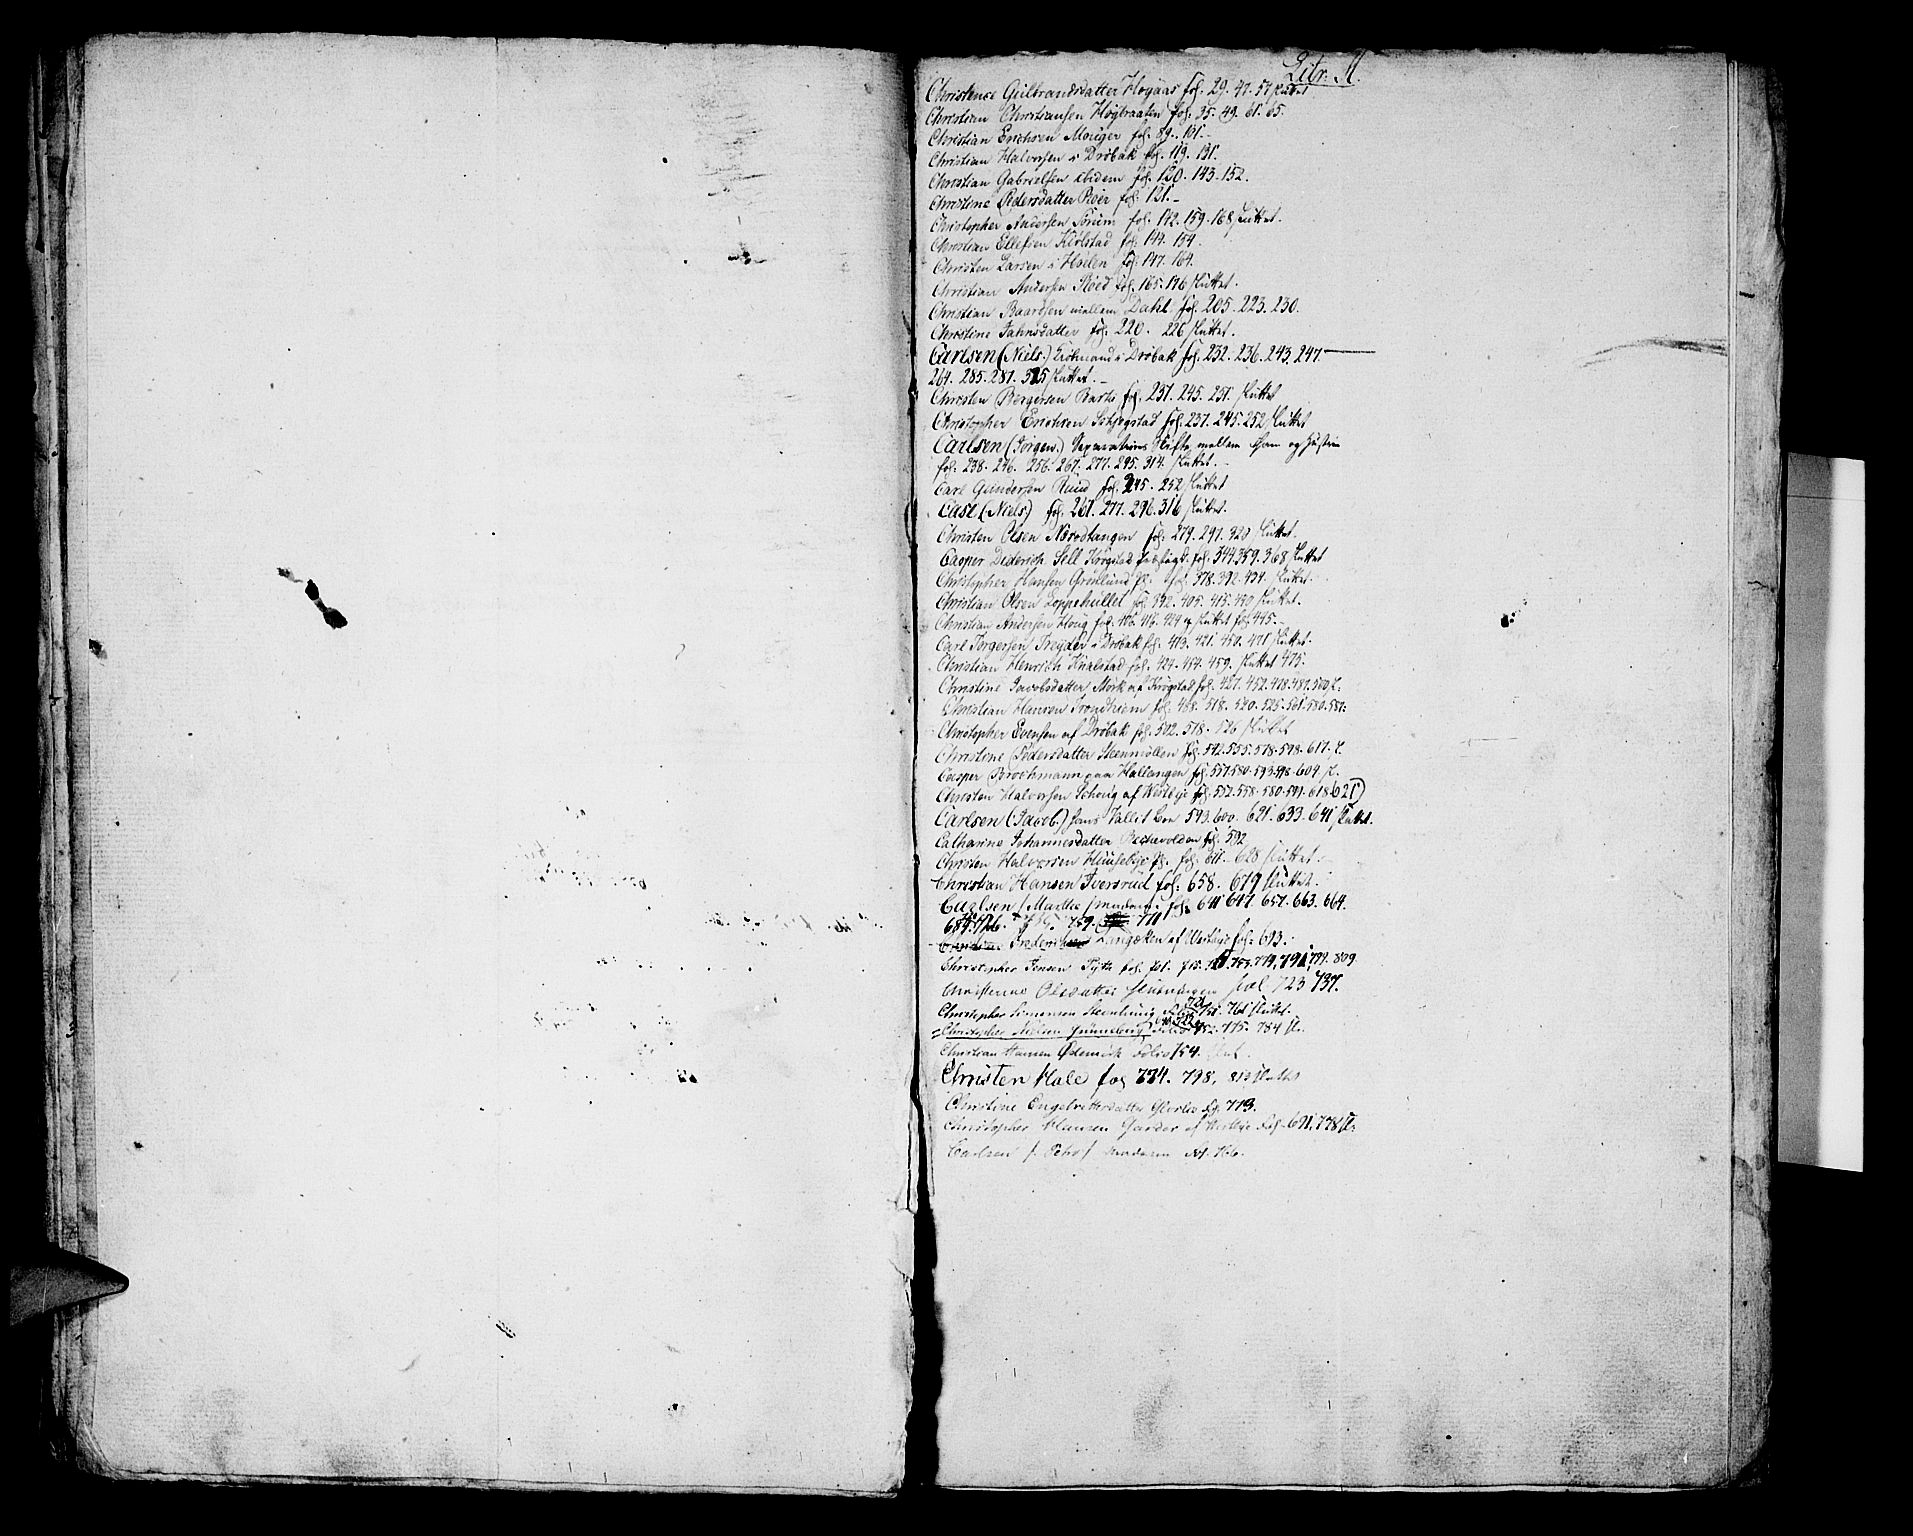 Litr:
Christence Gulbrandsdatter Hogaas fol. 29. 47. 57 sluttet
Christian Christiansen Högbraaten fol. 35. 49. 61. 65.
Christian Erichsen Mouger fol. 89. 101.
Christian Halvorsen i Dröbak fol. 119. 131.
Christian Gabrielsen ibidem fol. 120. 143. 152.
Christine Pedersdatter Röer fol. 121.
Christopher Andersen Sörum fol. 142. 159. 168 sluttet.
Christian Ellefsen Kiölstad fol. 144. 154.
Christen Larsen i Hvilen fol. 147. 164.
Christian Andersen Röed fol. 165. 176 sluttet.
Christian Baardsen mellem Dahl fol. 205. 223. 230.
Christine Jahnsdatter fol. 220. 226 sluttet.
Carlsen (Niels) Kiöbmand i Dröbak fol. 232. 236. 243. 247.
264. 285. 287. 315 sluttet.
Christen Bergersen fol. 237. 245. 251. sluttet
Christopher Erichsen fol. 237. 245. 252 sluttet
Carlsen (Jörgen) Separations Skifte mellem ham og Hustrue
fol. 238. 246. 256. 267. 277. 295. 314. sluttet.
Carl Gundersen Ruud fol. 245. 252 sluttet
Case (Niels) fol. 261. 277. 296. 316 sluttet.
Christen Olsen Nordtangen fol. 279. 297. 320 sluttet.
Casper Diderich Sell Krogstad fol. 344. 359. 368 sluttet
Christopher Hansen Grönlund fol. 378. 392. 434. sluttet.
Christian Olsen Loppehullet fol. 392. 405. 415. 430 sluttet.
Christian Andersen Houg fol. 416. 424 sluttet fol. 445.
Carl Torgersen Treyder i Dröbak fol. 413. 421. 450. 471 sluttet.
Christian Henrich Knalstad fol. 424. 454. 459. sluttet 475.
Christine Jacobsdatter Mörk af Krogstad fol. 427. 452. 478. 487. 500 s.
Christian Hansen Trondhiem fol. 488. 518. 520. 525. 561. 580. 587.
Christopher Evensen af Dröbak fol. 502. 518. 526 sluttet
Christine Pedersdatter Steenmöllen fol. 542. 555. 578. 598. 617.
Casper Brochmann paa Hallangen fol. 557. 580. 593. 598. 609.
Christen Halvorsen af Westbye fol. 552. 558. 580. 591. 618. 621
Carlsen (Jacob) hans Fallit Boe 593. 600. 621. 633. 641 sluttet.
Catharine Johannesdatter fol. 592
Christen Halvorsen Huusebye fol. 611. 628 sluttet.
Christian Hansen Iversrud fol. 658. 679 sluttet.
Carlsen / Marthe / Madame fol. 641 647. 657. 663. 664.
689. 716. 759. 771
Frederich Langæken af Westbye fol. 693.
Christopher Jensen fol. 701. 715. 753. 779, 791, 799. 809
Christenne Olsdatter fol 723 737.
Christopher Simensen 751. 761 sluttet.
Christopher Nielsen Folio 752. 775. 784 sl.
Christian Hansen Ödemörk Folio 754. slut.
Christen Hale fol 774. 798. 813 sluttet
Christine Engebretsdatter fol. 773.
Christopher Hansen Garder af Westbye fol. 691, 778 sl.
Carlsen / Petro / Madame fol. 766.